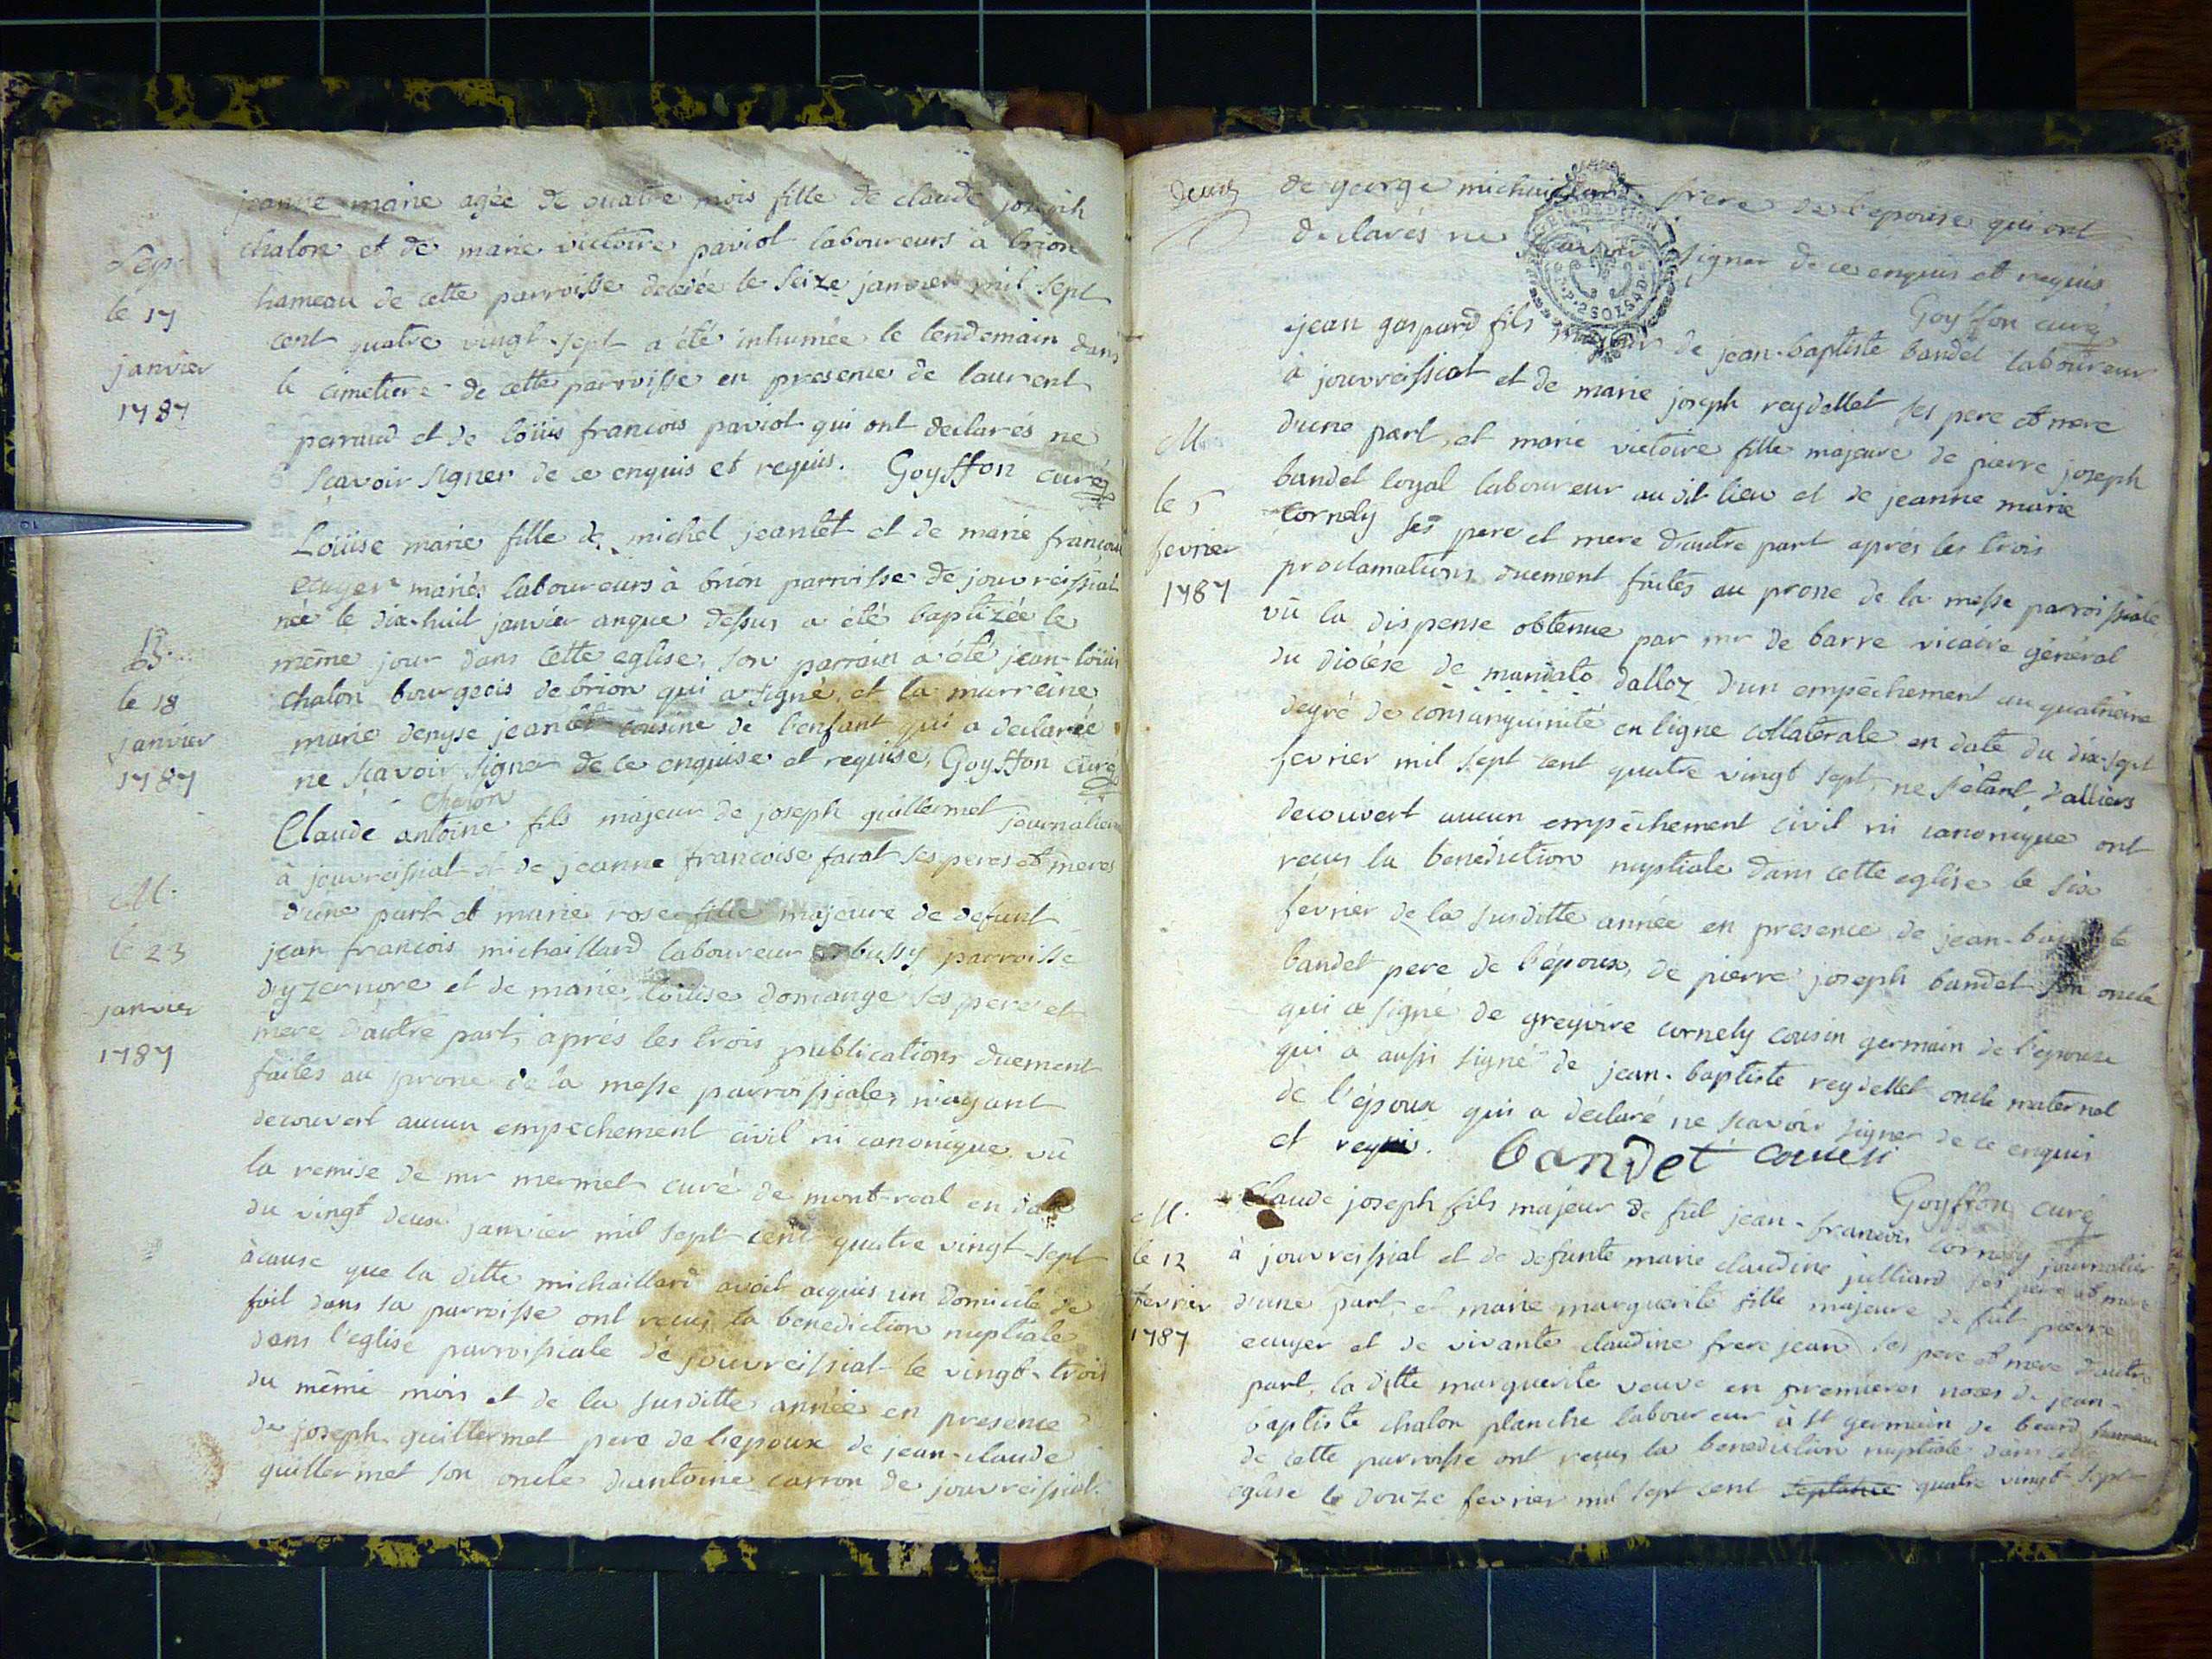 jeanne marie agée de quatre mois fille de claude joseph
chalon et de marie victoire paviot laboureurs a brion
hameau de cette parroisse decedée le seize janvier mil sept
cent quatre vingt-sept a été inhumée le lendemain dans
le cimetiere de cette parroisse en presence de laurent
perraud et de loüis francois paviot qui ont declarés ne
scavoir signer de ce enquis et requis. Goyffon curé
Sep.
le 17
janvier
1787
Loüise marie fille de michel jeantet et de marie francoise
ecuyer mariés laboureurs à brion parroisse de jouvreissiat
née le dix-huit janvier anque dessus a été baptizée le
même jour dans cette eglise, son parrain a été jean-loüis
chalon bourgeois de brion qui a signé, et la marreine
marie denyse jeantet cousine de l'enfant qui a declarée
ne scavoir signer de ce enquise et requise, Goyffon curé
chalon
B.
le 18
janvier
1787
Claude antoine fils majeur de joseph guillermet journalier
à jouvreissiat et de jeanne francoise favat ses peres et meres
d'une part et marie rose fille majeure de defunt
jean francois michaillard laboureur bussy parroisse
dyzernore et de marie loüise domange ses pere et
mere d'autre part, aprés les trois publications duement
faites au prone de la messe parroissiale, n'ayant
decouvert aucun empechement civil ni canonique vû
la remise de mr mermet curé de mont-real en date
du vingt deux janvier mil sept cent quatre vingt-sept
àcause que la ditte michaillard avoit acquis un domicile de
fait dans sa parroisse ont reçus la benediction nuptiale
dans l'eglise parroissiale de jouvreissiat le vingt-trois
du même mois et de la susditte année en presence
de joseph guillermet pere de l'epoux de jean-claude
guillermet son oncle d'antoine carron de jouvreissiat
M.
le 23
janvier
1787
deux
de george michaillard frere de l'epouse qui ont
declarés ne scavoir signer de ce enquis et requis
Goyffon curé
jean gaspard fils majeur de jean-baptiste bandet laboureur
à jouvreissiat et de marie joseph reydellet ses pere et mere
d'une part, et marie victoire fille majeure de pierre joseph
bandet loyal laboureur au dit lieu et de jeanne marie
cornely ses pere et mere d'autre part aprés les trois
proclamations duement faites au prone de la messe parroissiale
vû la dispense obtenue par mr de barre vicaire général
du diocése de mandato dalloz d'un empêchement au quatrieme
degré de consanguinité en ligne collaterale en date du dix-sept
fevrier mil sept cent quatre vingt sept, ne s'étant d'alliers
decouvert aucun empêchement civil ni canonique ont
reçus la benediction nuptiale dans cette eglise le six
fevrier de la susditte année en presence de jean-baptiste
bandet pere de l'époux, de pierre joseph bandet son oncle
qui a signé de gregoire cornely cousin germain de l'epouse
qui a aussi signé de jean-baptiste reydellet oncle maternel
de l'époux qui a declaré ne scavoir signer de ce enquis
et requis. bandet
Goyffon curé
M.
le 5
fevrier
1787
Claude joseph fils majeur de fût jean-francois cornely journalier
à jouvreissiat et de defunte marie claudine julliard ses pere et mere
d'une part, et marie marguerite fille majeure de fût pierre
ecuyer et de vivante claudine frere jean ses pere et mere d'autre
part, la ditte marguerite veuve en premieres noces de jean-
baptiste chalon planche laboureur à st germain de beard hameau
de cette parroisse ont reçus la benediction nuptiale dans cette
eglise le douze fevrier mil sept cent septante quatre vingt-sept
M.
le 12
fevrier
1787